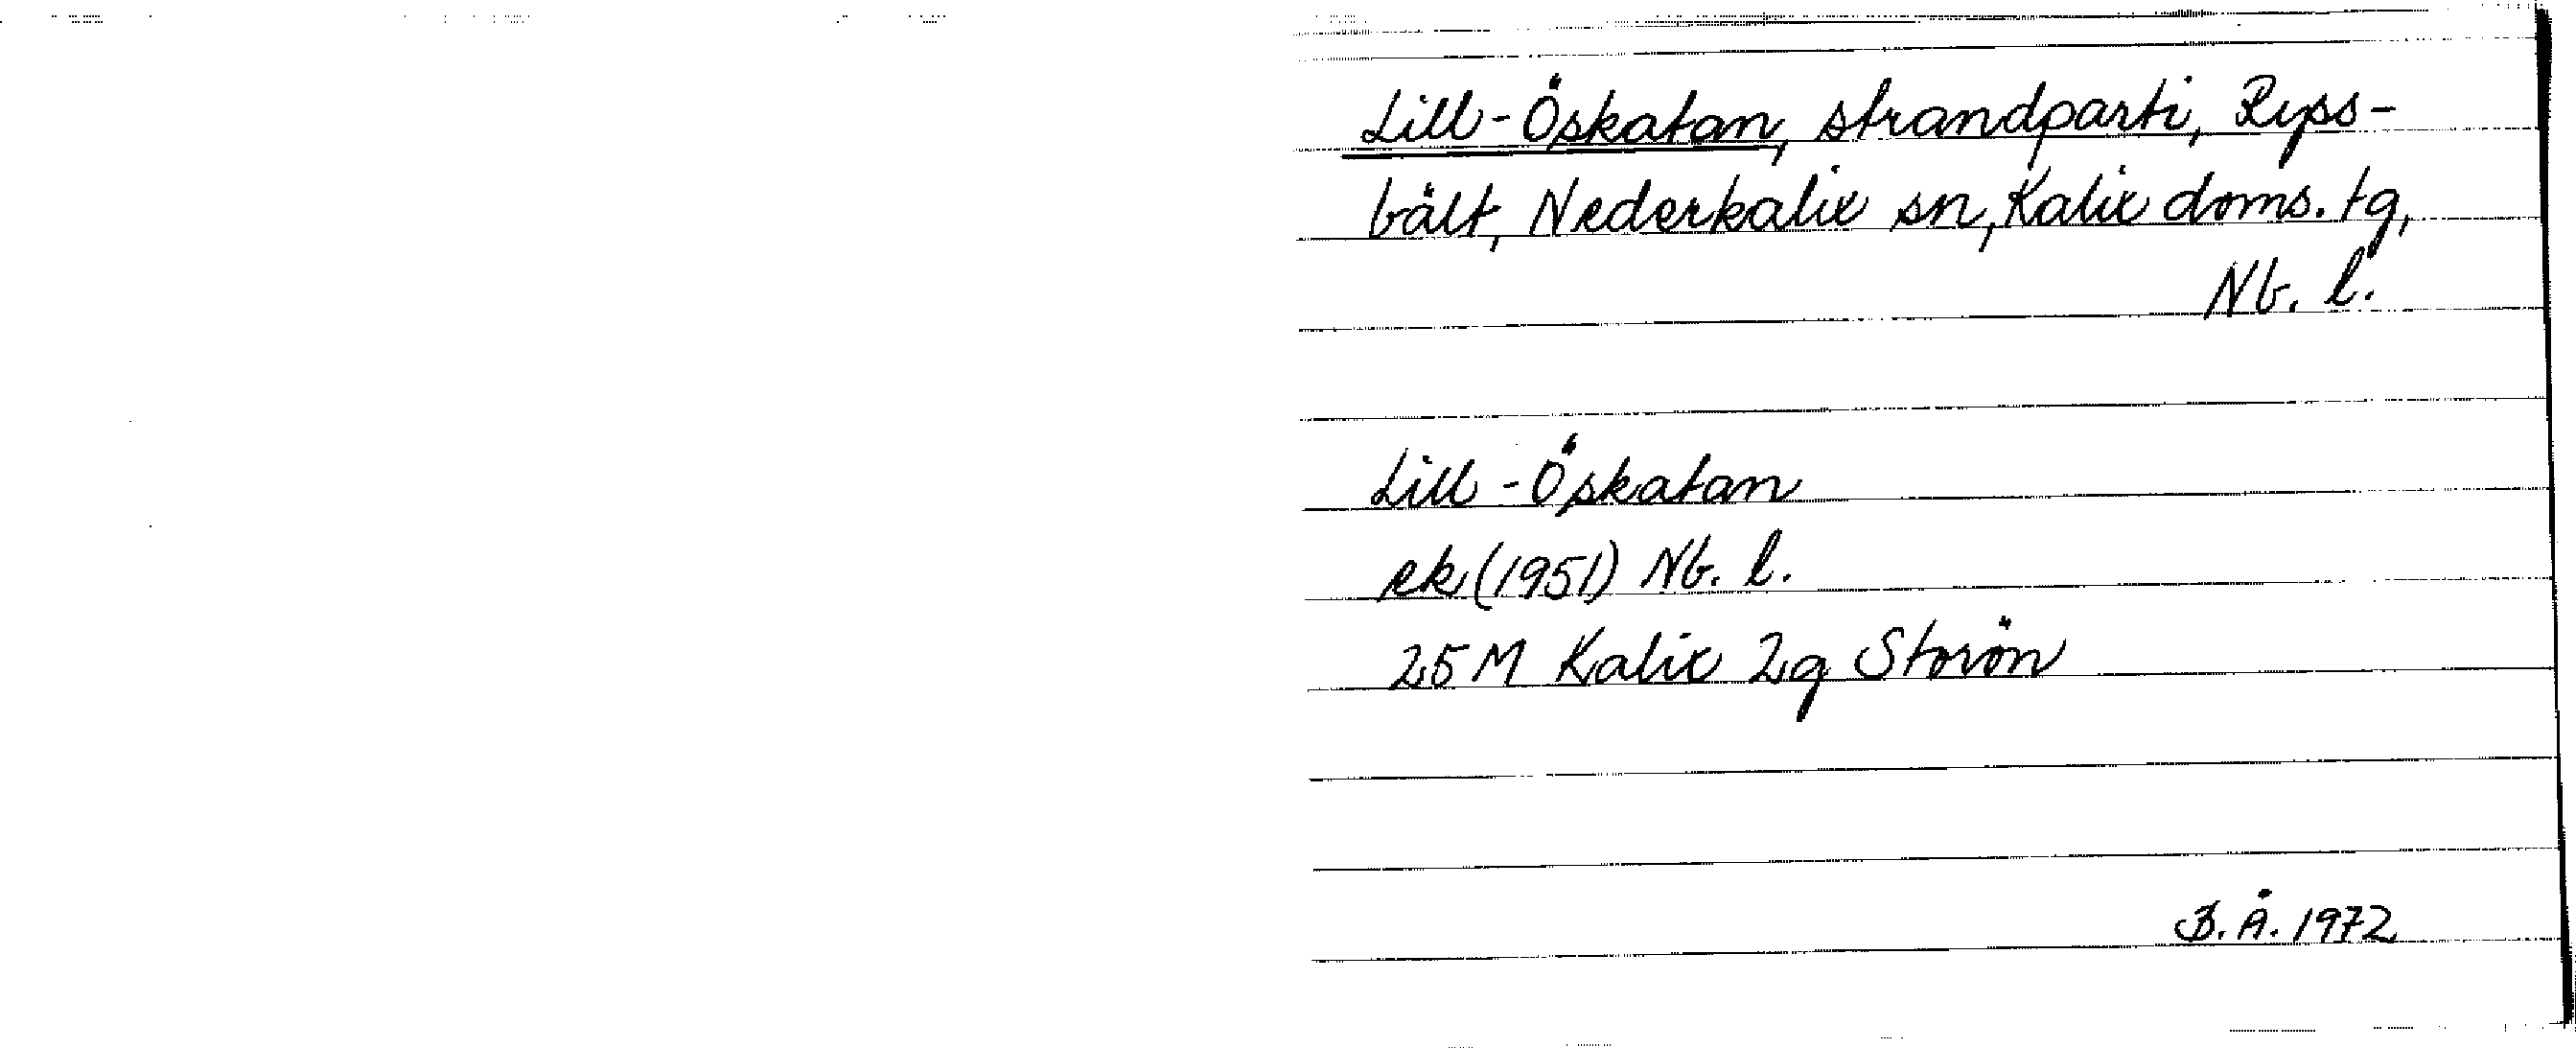 Lill-Öskatan, strandparti, Ryss-
bält, Nederkalix sn, Kalix doms. tg,
Nb. l.
Lill-Öskatan
ek (1951) Nb. l.
25 M Kalix 2g Storön
B. Å. 1972